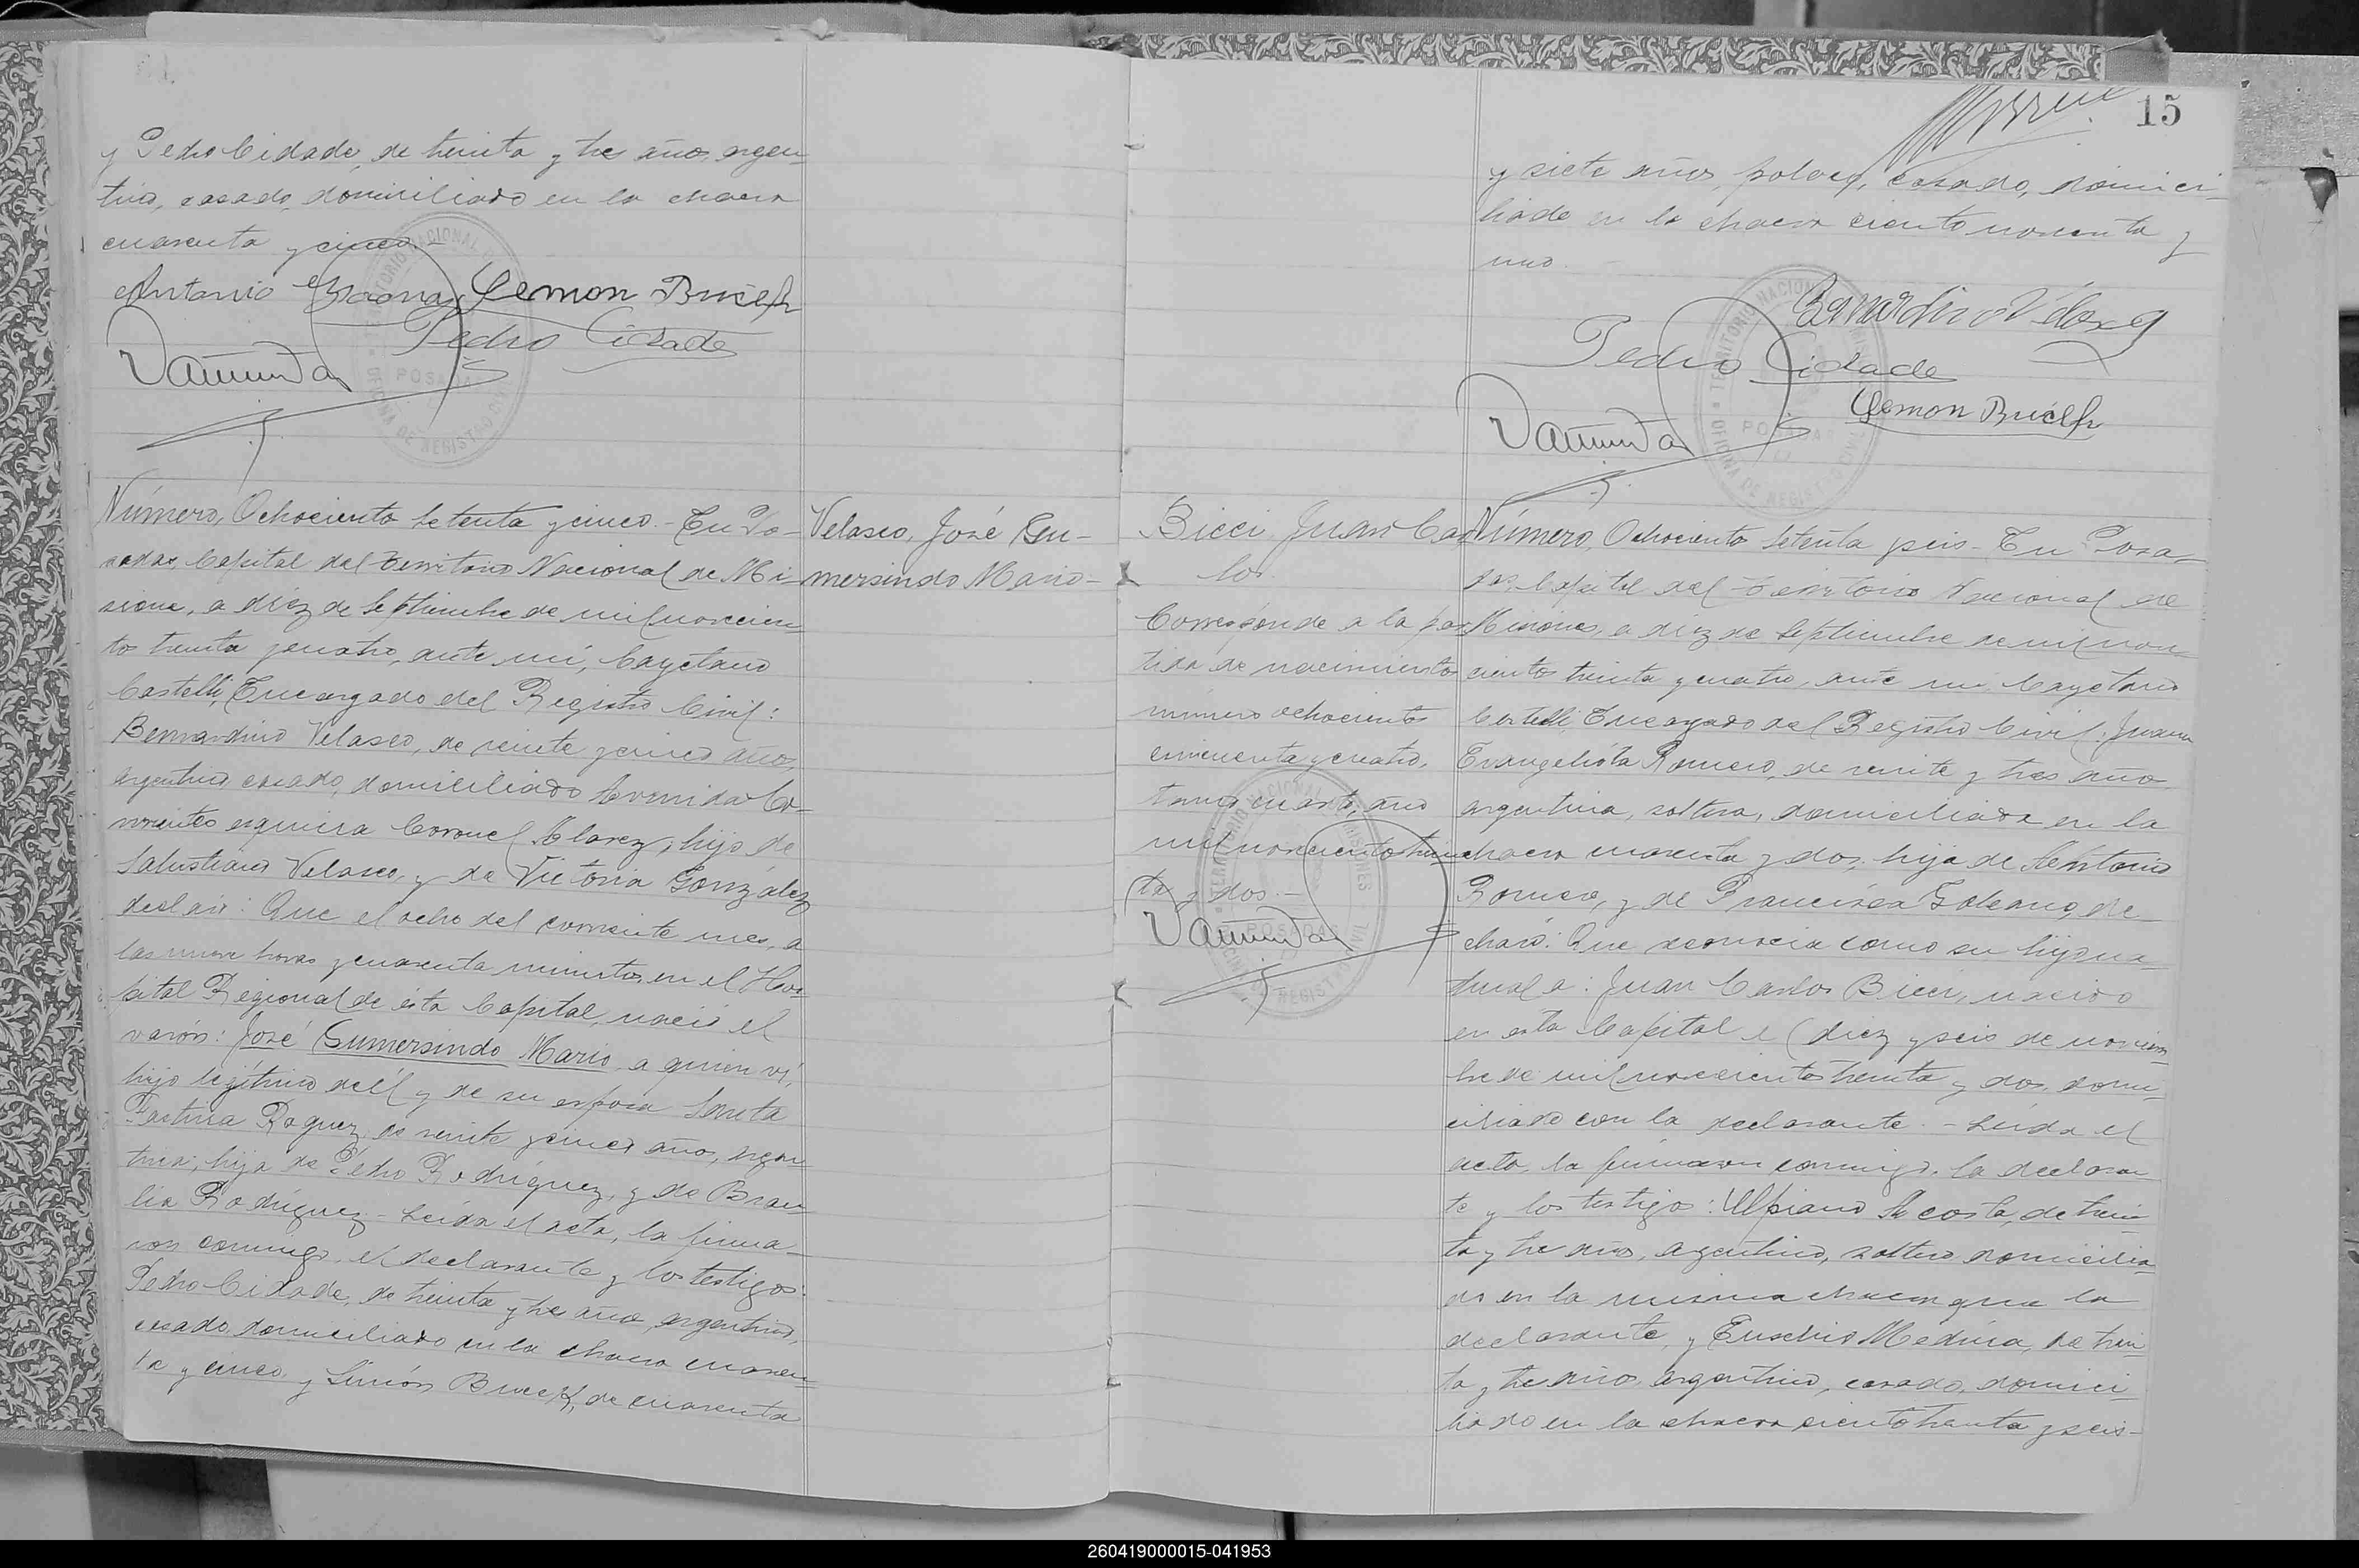 y Pedro Cidade, de treinta y tres años, argen-
tino, casado, domiciliado en la chacra
cuarenta y cinco.-
Antonio
Pedro Cidade
TERRITORIO NACIONAL DE MISIONES
POSADAS
OFICINA DE REGISTRO CIVIL
Número, Ochociento setenta y cinco.- En Po-
sadas, Capital del Territorio Nacional de Mi-
siones, a diez de Septiembre de mil novecien-
tos treinta y cuatro, ante mí, Cayetano
Castelli, Encargado del Registro Civil:
Bernardino Velasco, de veinte y cinco años,
argentino, casado, domiciliado Avenida Co-
rrientes esquina Coronel Alarez, hijo de
Salustiano Velasco, y de Victoria González
declaró: Que el ocho del corriente mes, a
las nueve horas y cuarenta minutos, en el Hos-
pital Regional de ésta Capital, nació el
varón: José Gumersindo Mario, a quien ví,
hijo legítimo de él y de su esposa Santa
Faustina Roguez, de veinte y cinco años, argen-
tina, hija de Pedro Rodríguez, y de Brau-
lia Rodríguez.- Leída el acta, la firma-
ron conmigo, el declarante y los testigos:
Pedro Cidade, de treinta y tres años, argentino,
casado, domiciliado en la chacra cuaren-
ta y cinco, y Simón, de cuarenta
Velasco, José Gu-
mersindo Mario-
15
y siete años, polaco, casado, domici-
liado en la chacra ciento noventa y
uno.
Bernardino Velasco
Pedro Cidade
TERRITORIO NACIONAL DE MISIONES
POSADAS
OFICINA DE REGISTRO CIVIL
Bicci Juan Car
los.
Corresponde a la par
tida de nacimiento
número ochocientos
cincuenta y cuatro,
tomo cuarto, año
mil novecientos trein
ta y dos.-
TERRITORIO NACIONAL DE MISIONES
POSADAS
OFICINA DE REGISTRO CIVIL
Número, Ochociento setenta y seis- En Posa-
das, Capital del Territorio Nacional de
Misiones, a diez de Septiembre de mil nove-
cientos treinta y cuatro, ante mí, Cayetano
Castelli, Encargado del Registro Civil: Juana
Evangelista Romero, de veinte y tres años
argentina, soltera, domiciliada en la
chacra cuarenta y dos, hija de Antonio
Romero, y de Francisca Galeano, de-
claró: Que reconocía como su hijo na-
tural a: Juan Carlos Bicci, nacido
en esta Capital el diez y seis de noviem
bre de mil novecientos treinta y dos, domi-
ciliado con la declarante.- Leída el
acta, la firmaron conmigo, la declaran
te y los testigos: Ulpiano Acosta, de trein
ta y tres años, argentino, soltero, domicilia-
do en la misma chacra que la
declarante, y Eusebio Medina, de trein
ta y tres años, argentino, casado, domici-
liado en la chacra ciento treinta y seis-
260419000015-041953